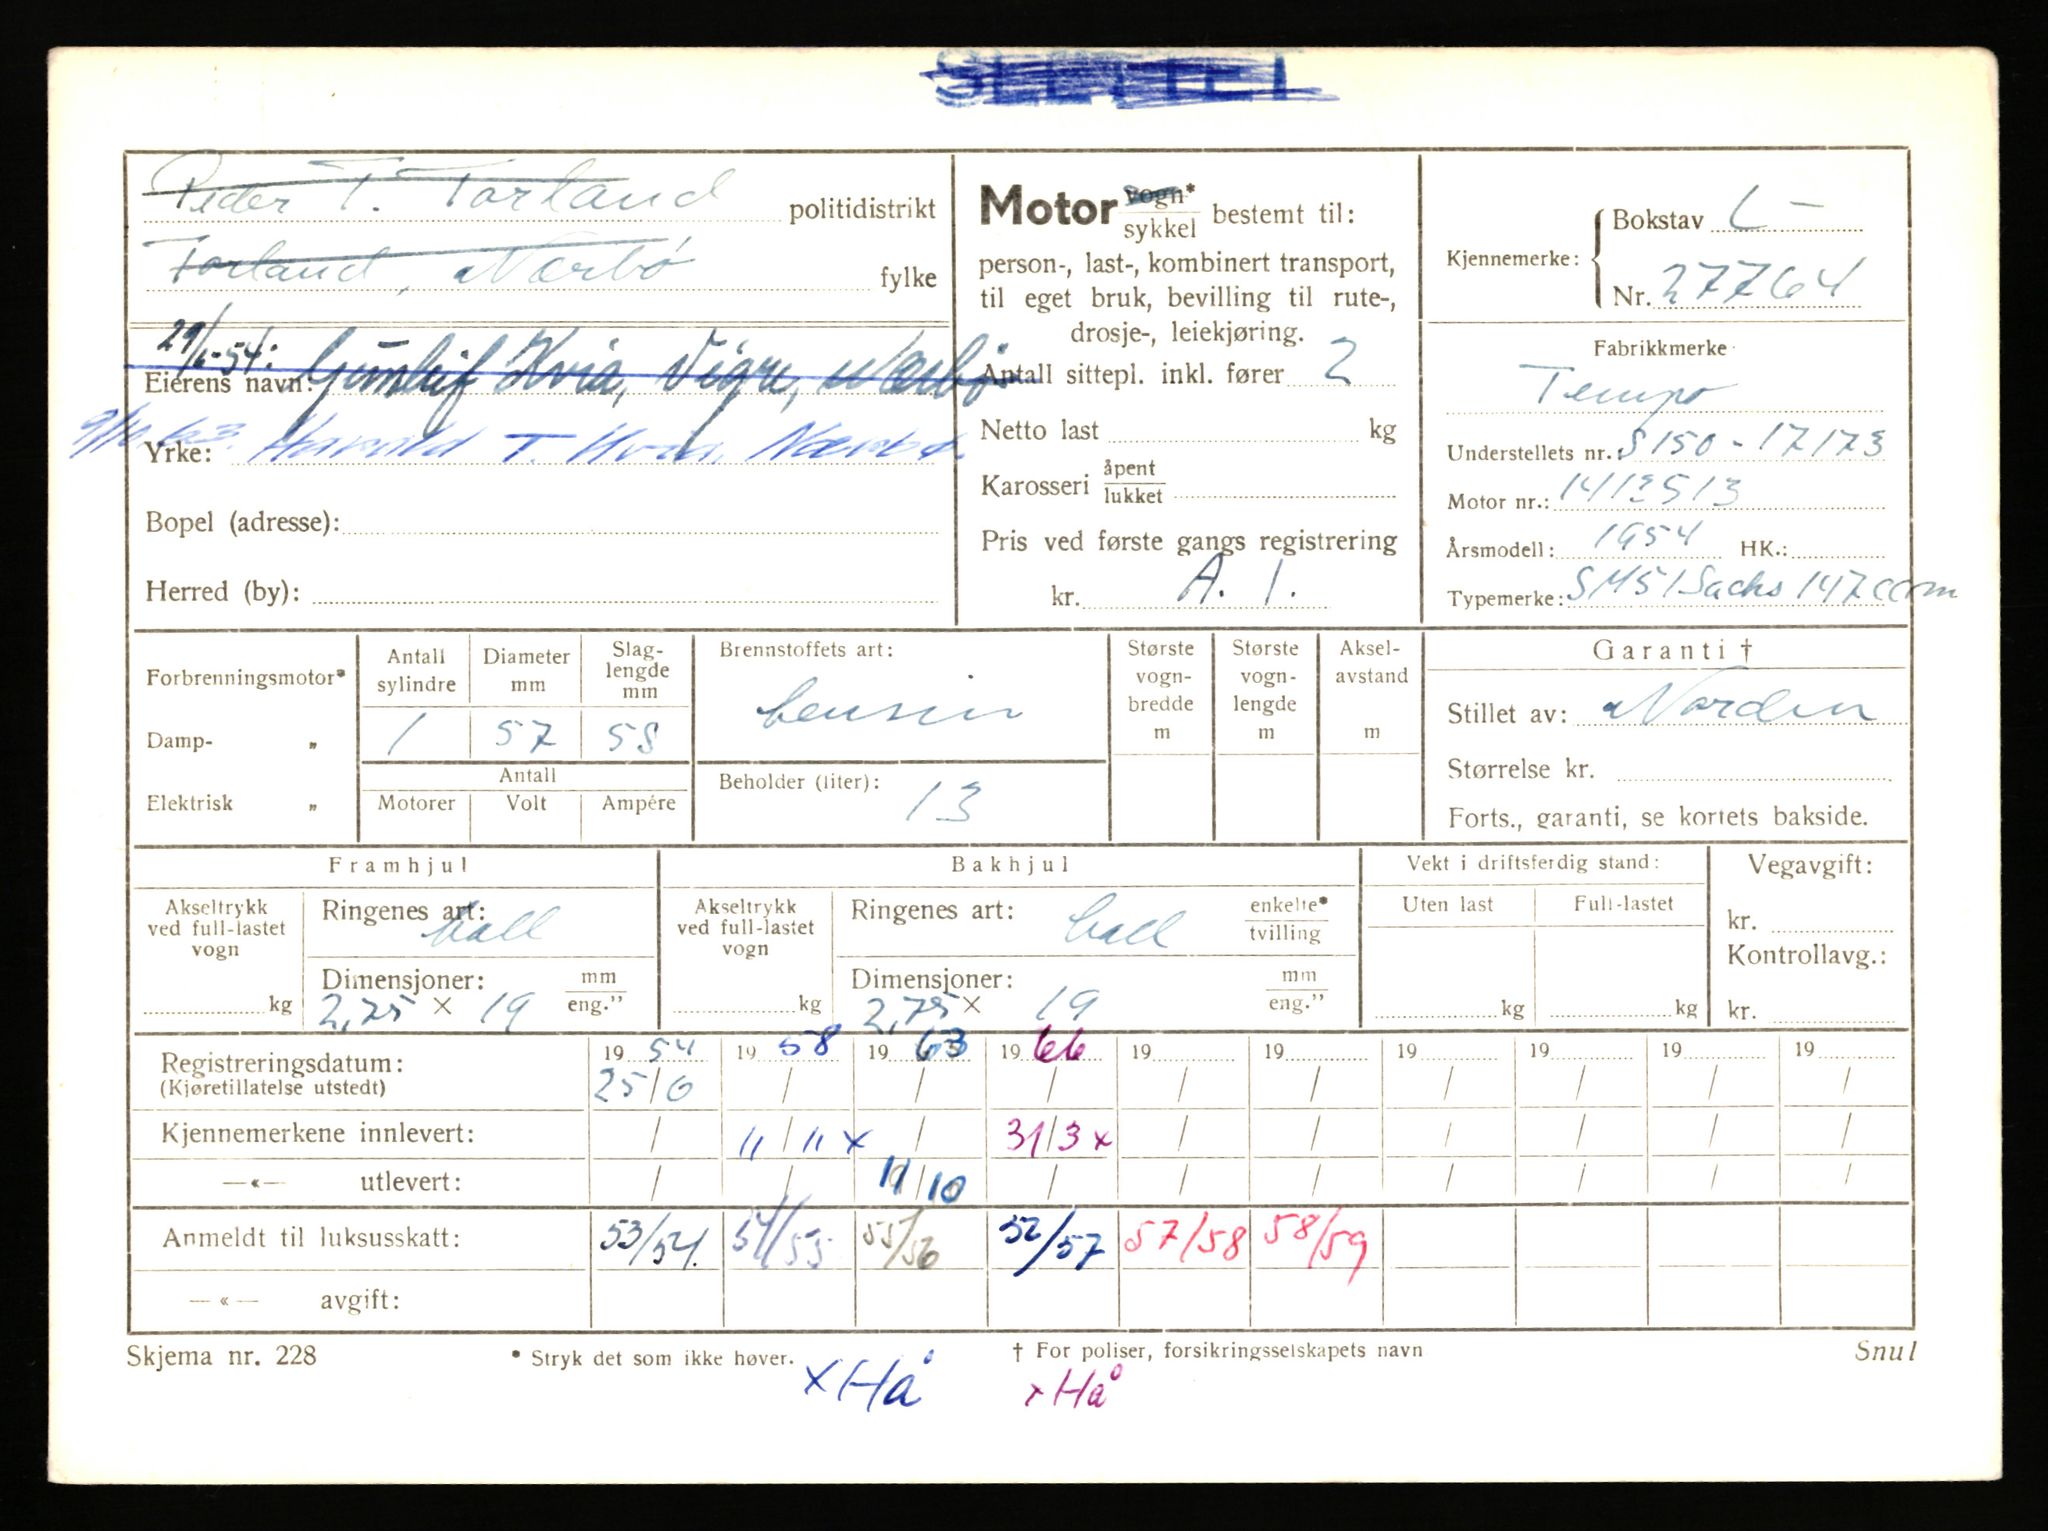 SLETTET
Peder T. Torland politidistrikt
Torland, Nærbø fylke
29/6-54: Gunleif Kvia, Vigre, Nærbø
Eierens navn:
Yrke: Harald T. Kvia, Nærbø
Bopel (adresse):
Herred (by):
Motor vogn* sykkel bestemt til:
person-, last-, kombinert transport,
til eget bruk, bevilling til rute-,
drosje-, leiekjøring.
Antall sittepl. inkl. fører 2
Netto last kg
Karosseri åpent lukket
Pris ved første gangs registrering
kr. A. 1.
Kjennemerke: Bokstav L-
Nr. 27764
Fabrikkmerke
Tempo
Understellets nr.: S 150 - 17173
Motor nr.:
Årsmodell: 1954 HK.:
Typemerke: SM51 Sachs 147 ccm
Forbrenningsmotor*
Damp- „
Elektrisk „
Antall sylindre Diameter mm Slaglengde mm
1 57 58
Antall
Motorer Volt Ampére
Brennstoffets art:
bensin
Beholder (liter):
13
Største vogn-bredde m
Største vogn-lengde m
Aksel-avstand m
Garanti †
Stillet av: Norden
Størrelse kr.
Forts., garanti, se kortets bakside.
Framhjul
Akseltrykk ved full-lastet vogn kg
Ringenes art: ball
Dimensjoner: mm eng."
2,75 × 19
Bakhjul
Akseltrykk ved full-lastet vogn kg
Ringenes art: ball enkelte* tvilling
Dimensjoner: mm eng."
2,75 × 19
Vekt i driftsferdig stand:
Uten last Full-lastet
kg kg
Vegavgift:
kr.
Kontrollavg.:
kr.
Registreringsdatum: 19 54 19 58 19 63 19 66 19 19 19 19 19 19
(Kjøretillatelse utstedt) 25/6 / / / / / / / / /
Kjennemerkene innlevert: / 11/11 x / 31/3 x / / / / / /
—«— utlevert: / / 11/10 / / / / / / /
Anmeldt til luksusskatt: 53/54. 54/55 55/56 /57 57/58 58/59
—«— avgift:
Skjema nr. 228
* Stryk det som ikke høver.
† For poliser, forsikringsselskapets navn
Snul
x Hå
x Hå